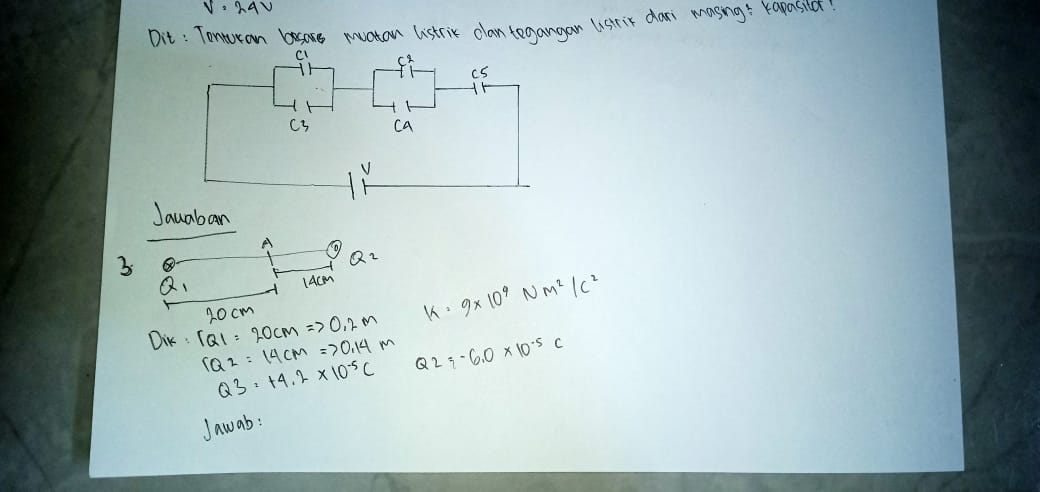 V = 24V
Dit : Tentukan besare muatan listrik dan tegangan listrik dari masing² kapasitor !
C1
C2
C5
C3
C4
V
Jawaban
3.
A
Q1
Q2
14cm
20cm
Dik : rQ1 = 20cm => 0,2 m
K = 9 x 10⁹ N m² / C²
rQ2 = 14cm => 0,14 m
Q3 = +4,2 x 10⁻⁵ C
Q2 = -6,0 x 10⁻⁵ C
Jawab :